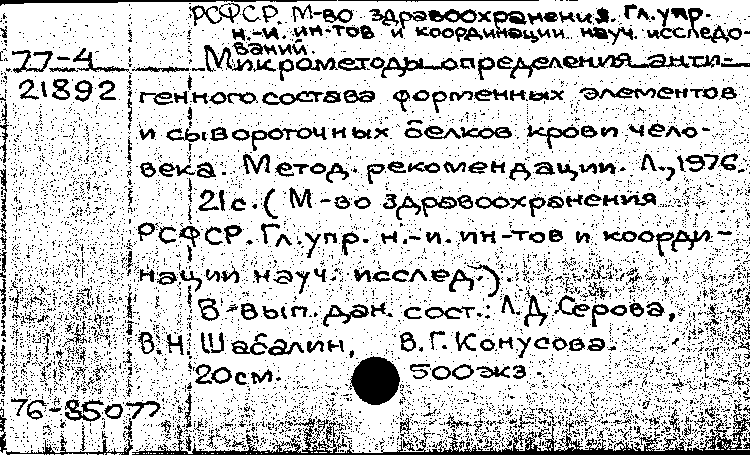 РСФСР. М-во здравоохранения. Гл. упр.
н.-и. ин-тов и координации науч. исследо-
ваний.
77-4 Микрометоды определения анти-
21892 генного состава форменных элементов
и сывороточных белков крови чело-
века. Метод. рекомендации. Л., 1976.
21с. ( М-во здравоохранения
РСФСР. Гл. упр. н.-и. ин-тов и коорди-
нации науч. исслед.).
В вып. дан. сост.: Л.Д. Серова,
В.Н. Шабалин, В.Г. Конусова.
20см. 500экз.
76-85077